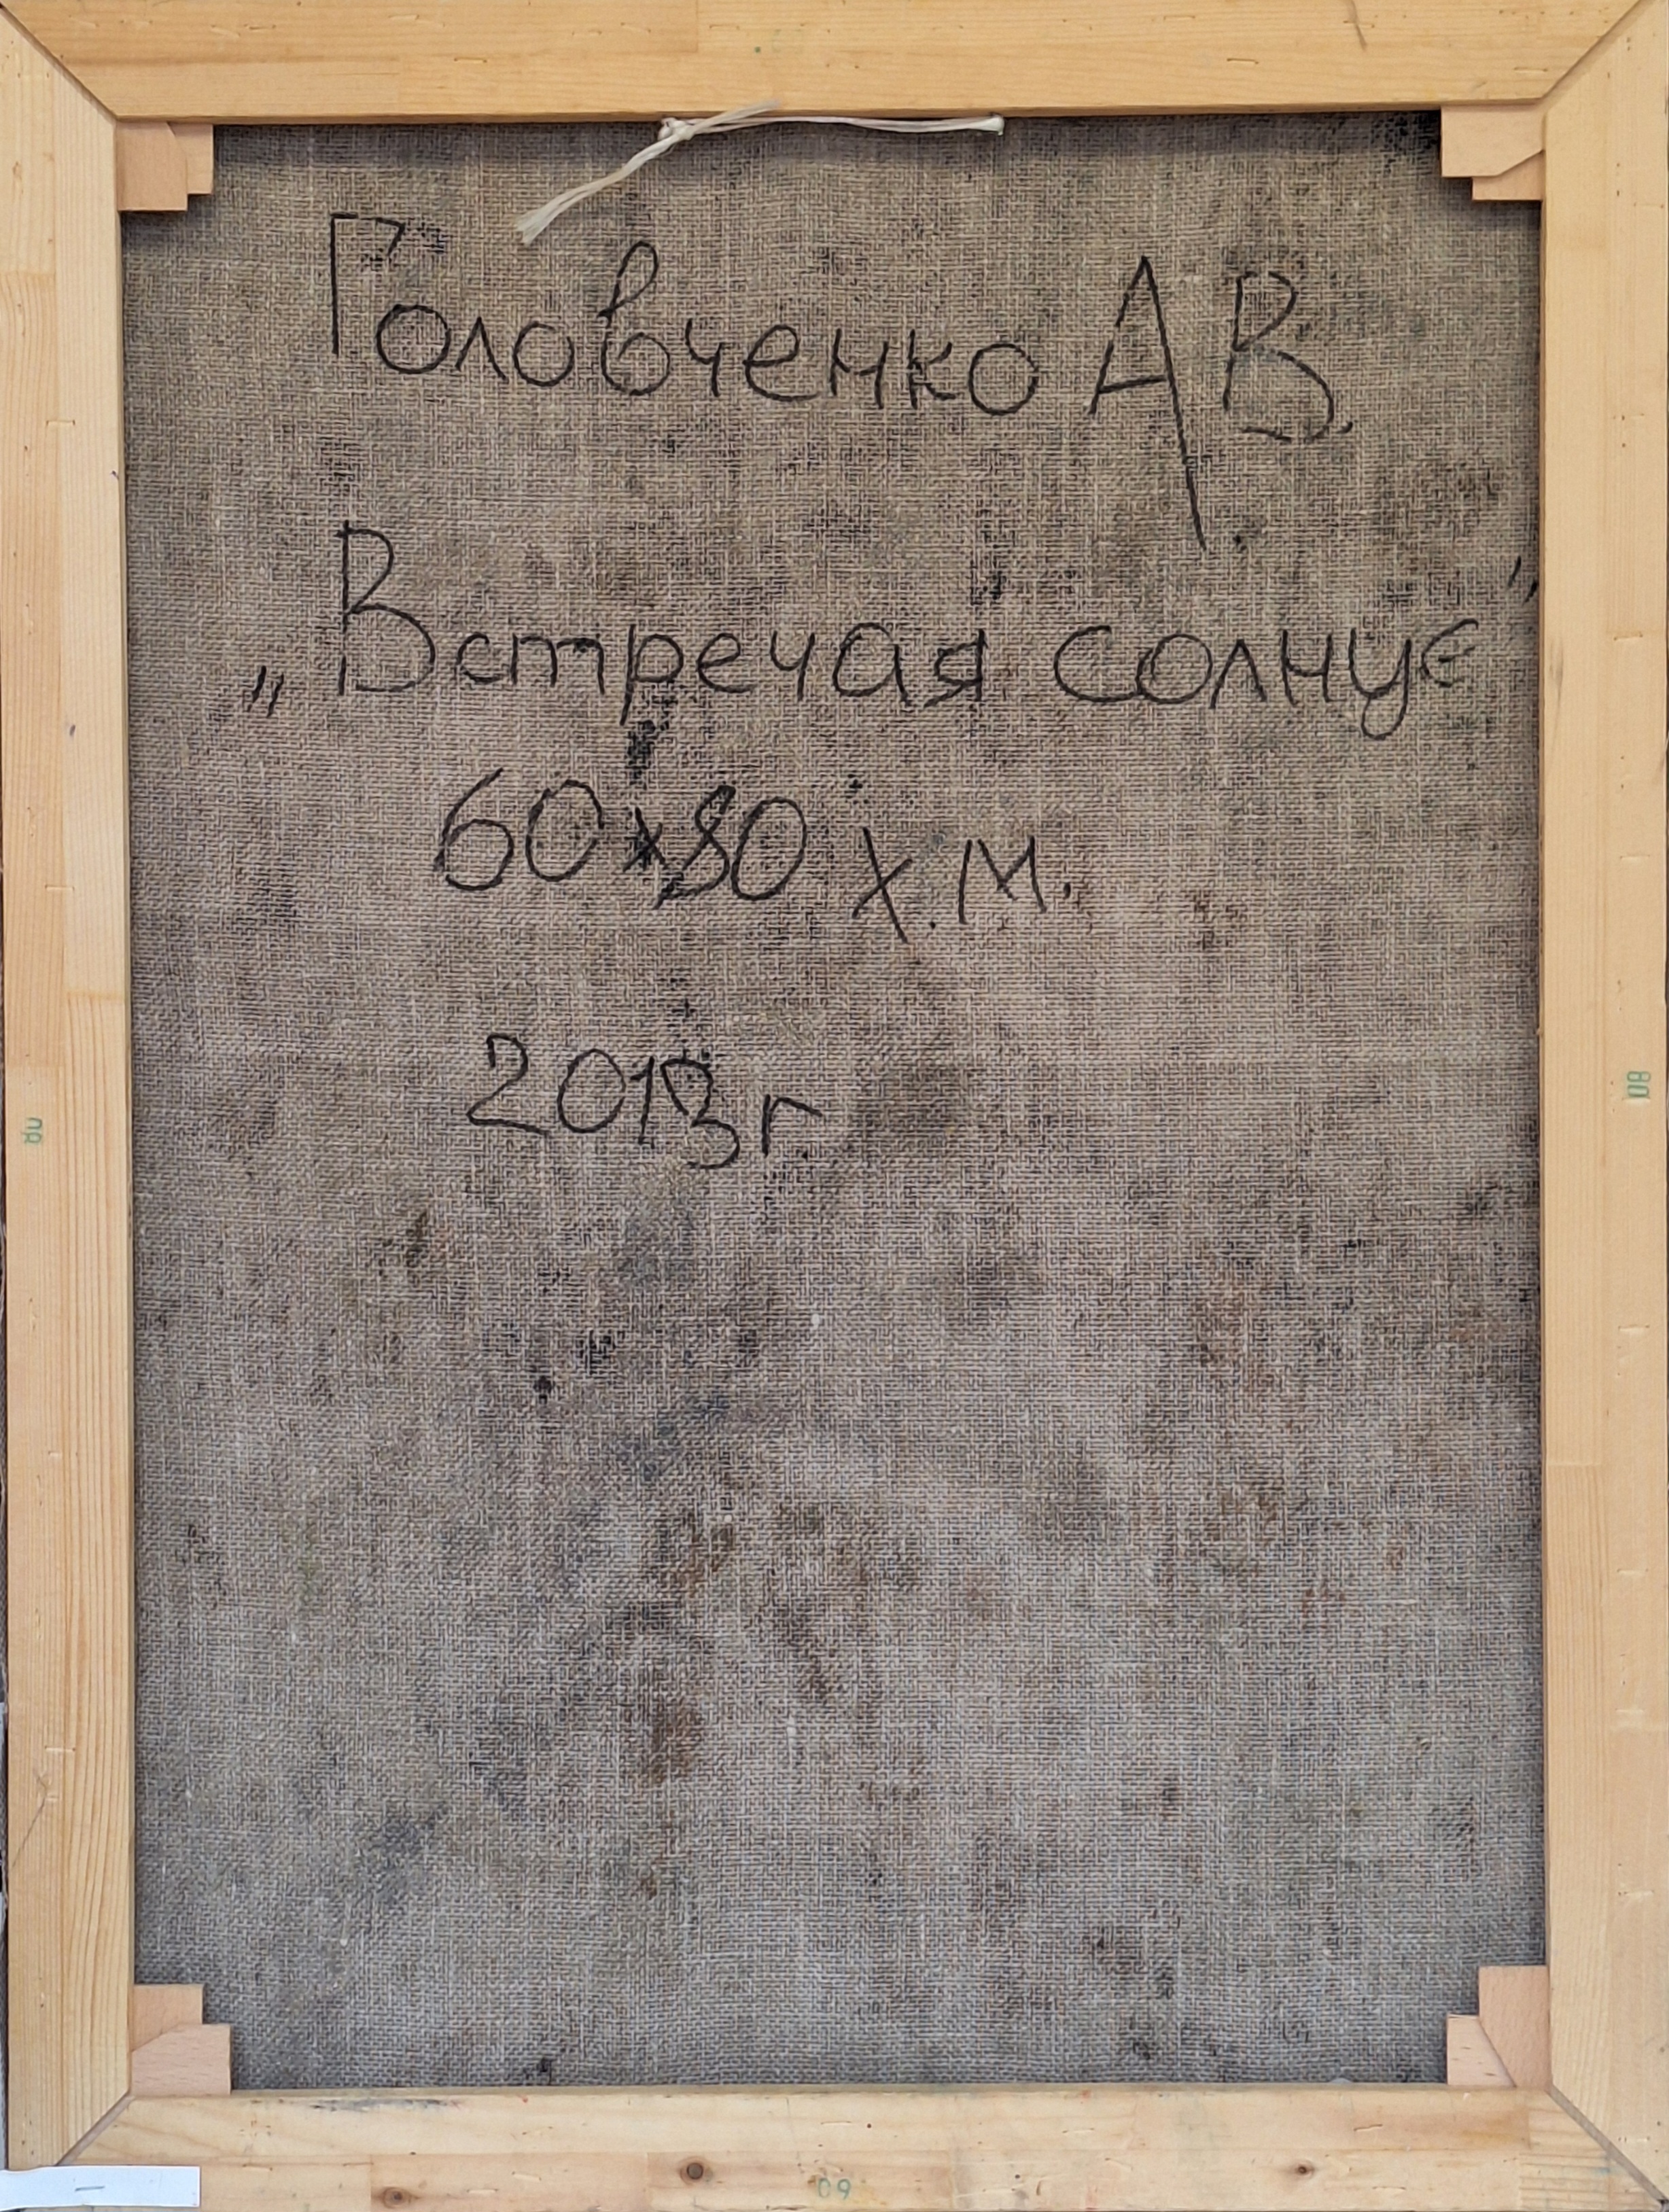 Головченко А.В.
„Встречая солнце"
60x80 х.м.
2013г.
80
60